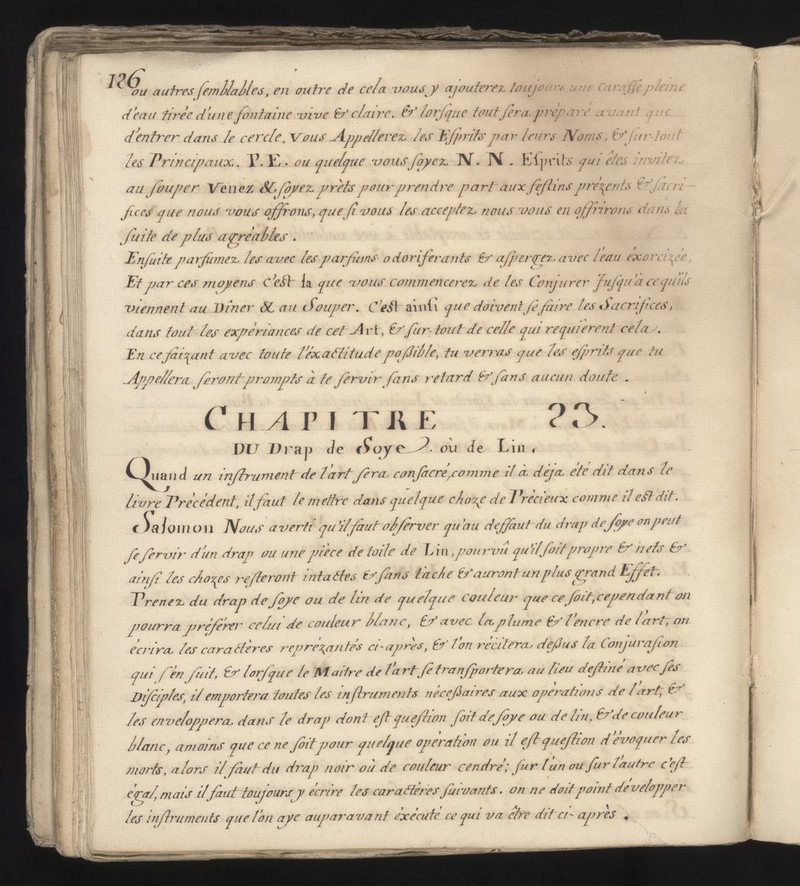 126
ou autres semblables, en outre de cela vous y ajouterez toujours une Caraffe pleine
d'eau tirée d'une fontaine vive & claire. & lorsque tout sera préparé avant que
d'entrer dans le cercle, Vous Appellerez les Esprits par leurs Noms, & sur-tout
les Principaux. P. E. ou quelque vous soyez N. N. Esprits qui êtes invitez
au souper Venez & soyez prêts pour prendre part aux festins prézents & sacri-
fices que nous vous offrons, que si vous les acceptez nous vous en offrirons dans la
suite de plus agréables.
Ensuite parfumez les avec les parfums odoriferants & aspergez avec l'eau éxorcizée,
Et par ces moyens c'est la que vous commencerez de les Conjurer Jusqu'a ce qu'ils
viennent au Dîner & au Souper. C'est ainsi que doivent se faire les Sacrifices,
dans tout les expériances de cet Art, & sur-tout de celle qui requierent cela.
En ce faizant avec toute l'éxactitude possible, tu verras que les esprits que tu
Appellera seront prompts à te servir sans retard & sans aucun doute.
CHAPITRE 23.
DU Drap de Soye. ou de Lin.
Quand un instrument de l'art sera consacré, comme il à déja été dit dans le
livre Précédent, il faut le mettre dans quelque choze de Précieux comme il est dit.
Salomon Nous averti qu'il faut observer qu'au deffaut du drap de soye on peut
se servir d'un drap ou une pièce de toile de Lin, pourvû qu'il soit propre & nets &
ainsi les chozes resteront intactes & sans tache & auront un plus grand Effet.
Prenez du drap de soye ou de lin de quelque couleur que ce soit, cependant on
pourra préférer celui de couleur blanc, & avec la plume & l'encre de l'art, on
écrira les caractères reprézantés ci-après, & l'on récitera dessus la Conjurasion
qui s'én suit, & lorsque le Maitre de l'art se transportera au lieu destiné avec ses
Disciples, il emportera toutes les instruments nécessaires aux opérations de l'art, &
les enveloppera dans le drap dont est question soit de soye ou de lin, & de couleur
blanc, amoins que ce ne soit pour quelque opération ou il est question d'évoquer les
morts, alors il faut du drap noir où de couleur cendré; sur l'un ou sur l'autre c'est
égal, mais il faut toujours y écrire les caractères suivants. on ne doit point développer
les instruments que l'on aye auparavant éxécuté ce qui va être dit ci-après.